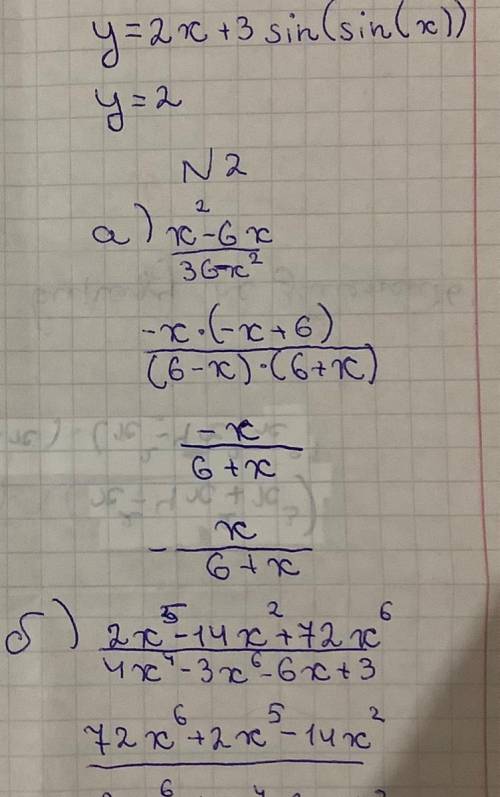 y=2x+3 sin(sin(x))
y=2
N2
а) x²-6x
36-x²
-x·(-x+6)
(6-x)·(6+x)
-x
6+x
- x
6+x
б) 2x⁵-14x²+72x⁶
4x⁴-3x⁶-6x+3
72x⁶+2x⁵-14x²